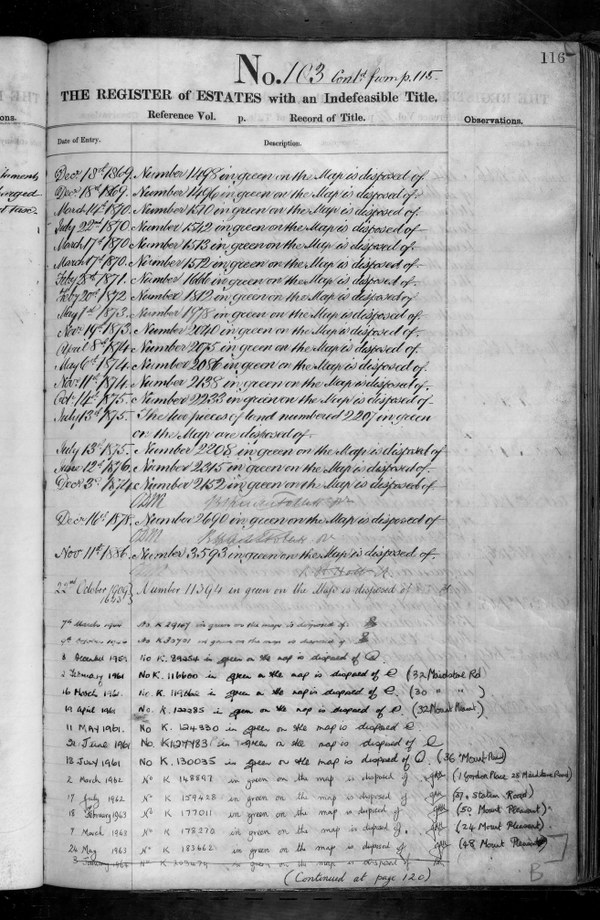 116
No. 103 Contd. from p. 115.
THE REGISTER of ESTATES with an Indefeasible Title.
Reference Vol. p. Record of Title. Observations.
ons.
Date of Entry. Description.
Decr 18th 1869. Number 1498 in green on the Map is disposed of.
Decr 18th 1869. Number 1496 in green on the Map is disposed of.
March 14th 1870. Number 1510 in green on the Map is disposed of.
July 22nd 1870. Number 1542 in green on the Map is disposed of.
March 17th 1870 Number 1513 in green on the Map is disposed of.
March 17th 1870. Number 1512 in green on the Map is disposed of.
Feby 28th 1871. Number 1666 in green on the Map is disposed of.
Feby 20th 1872 Number 1812 in green on the Map is disposed of
May 1st 1873. Number 1978 in green on the Map is disposed of.
Novr 19th 1873. Number 2040 in green on the Map is disposed of.
April 8th 1874. Number 2075 in green on the Map is disposed of.
May 6th 1874. Number 2086 in green on the Map is disposed of.
Novr 11th 1874. Number 2138 in green on the Map is disposed of.
Oct 14th 1875. Number 2233 in green on the Map is disposed of.
July 13th 1875. The two pieces of land numbered 2207 in green
on the Map are disposed of.
July 13th 1875. Number 2208 in green on the Map is disposed of
June 12th 1876. Number 2315 in green on the Map is disposed of.
Decr 3rd 1874. Number 2152 in green on the Map is disposed of
Decr 16th 1878. Number 2690 in green on the Map is disposed of
Novr 11th 1886. Number 3593 in green on the Map is disposed of.
22nd October 1909 Number 11394 in green on the Map is disposed of
7th March in green on the maps is disposed of
4th October in green on the maps is disposed of
8 December 1959 No K. 89254 in green on the map is disposed of
2 February 1961 No K. 116600 in green on the map is disposed of (32 Maidstone Rd
16 March 1961. No. K. in green on the map is disposed of. (30 " " )
19 April 1961 No. K. in green on the map is disposed of (32 Mount
11 May 1961. No K. 124330 in green on the map is disposed
21 June 1961 No. K127483 in green on the map is disposed of
18 July 1961 No K. 130035 in green on the map is disposed of (36 Mount Road)
2 March 1962 No K 148897 in green on the map is disposed of (1 Gordon Place 25 Maidstone Road)
17 July 1962 No K 159428 in green on the map is disposed of Station Road)
18 February 1963 No K 177011 in green on the map is disposed of (50 Mount Pleasant)
7 March 1963 No K 178270 in green on the map is disposed of. (24 Mount Pleasant)
24 May 1963 No K 183662 in green on the map is disposed of (48 Mount Pleasant)
3 No K in green on the map is disposed of
(Continued at page 120)
B